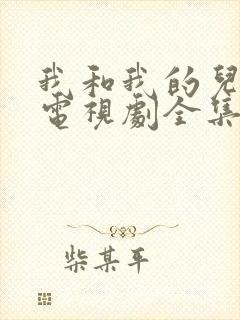 我和我的兒
電視劇全集
柴某平